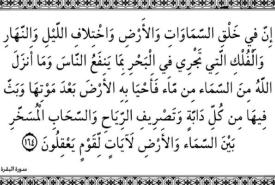 إِنَّ فِي خَلْقِ السَّمَاوَاتِ وَالْأَرْضِ وَاخْتِلَافِ اللَّيْلِ وَالنَّهَارِ
وَالْفُلْكِ الَّتِي تَجْرِي فِي الْبَحْرِ بِمَا يَنفَعُ النَّاسَ وَمَا أَنزَلَ
اللَّهُ مِنَ السَّمَاءِ مِن مَّاءٍ فَأَحْيَا بِهِ الْأَرْضَ بَعْدَ مَوْتِهَا وَبَثَّ
فِيهَا مِن كُلِّ دَابَّةٍ وَتَصْرِيفِ الرِّيَاحِ وَالسَّحَابِ الْمُسَخَّرِ
بَيْنَ السَّمَاءِ وَالْأَرْضِ لَآيَاتٍ لِّقَوْمٍ يَعْقِلُونَ ﴿١٦٤﴾
سورة البقرة